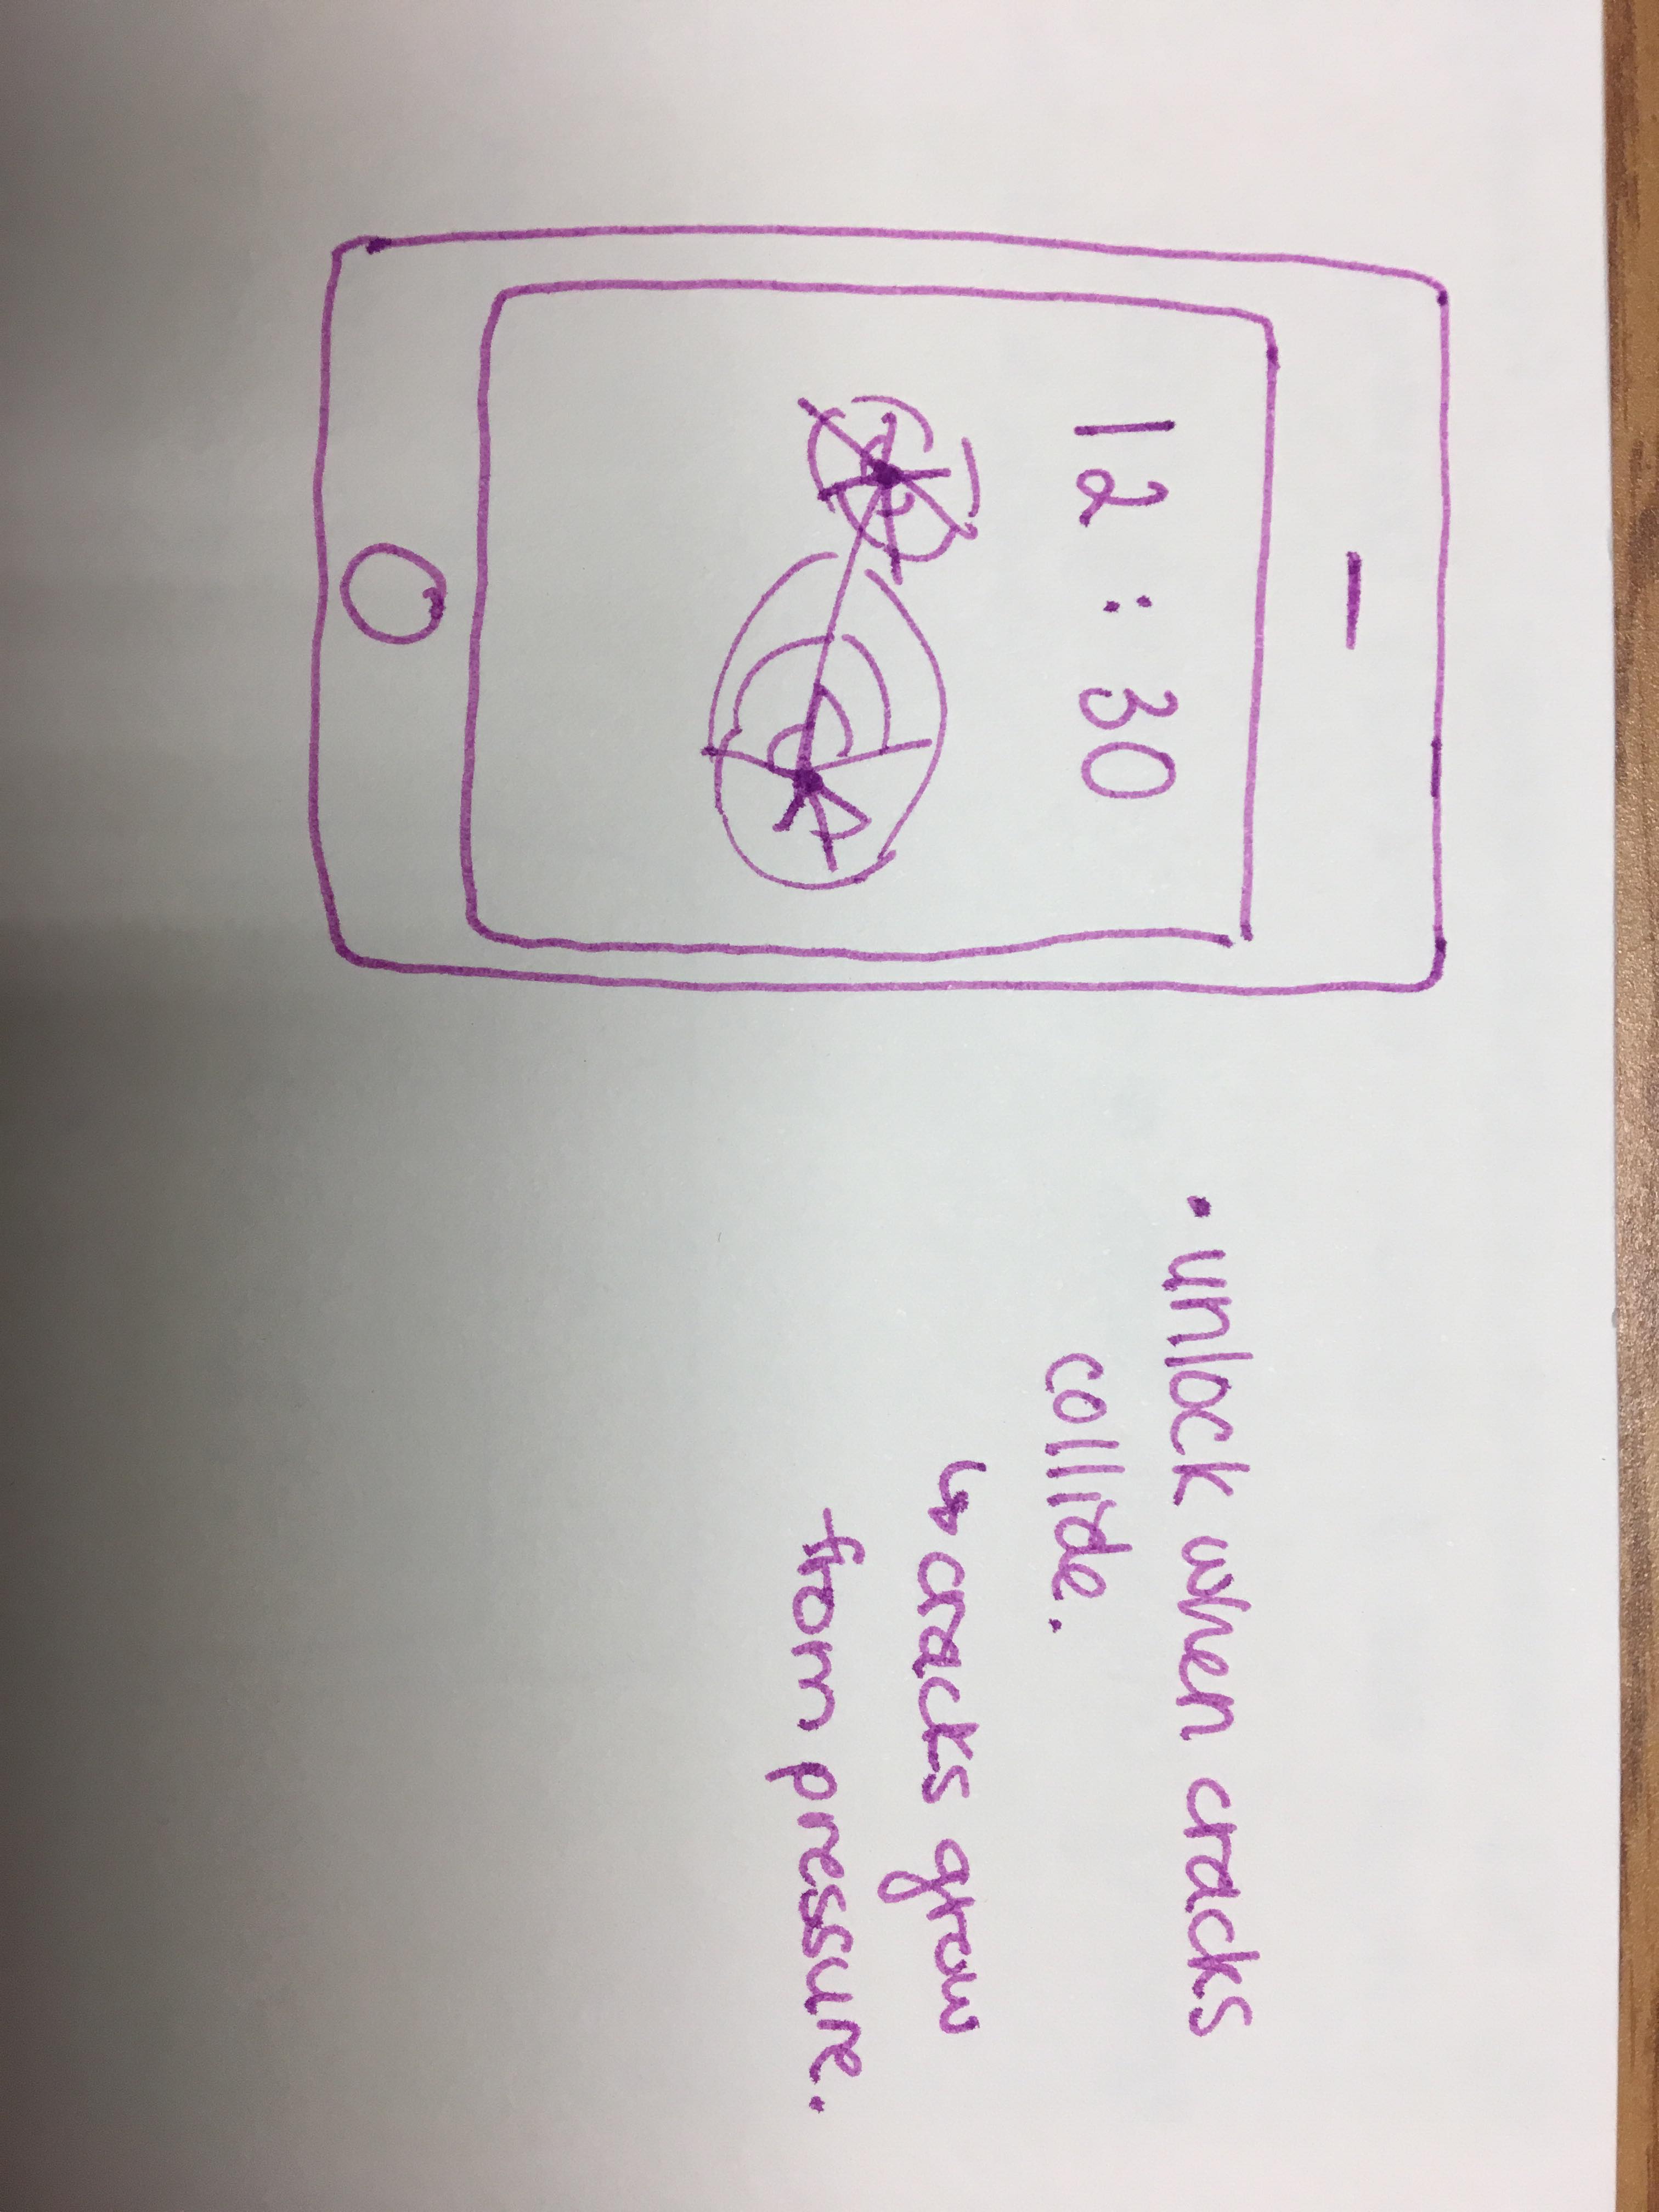 12 : 30
• unlock when cracks
collide.
↳ cracks grow
from pressure.